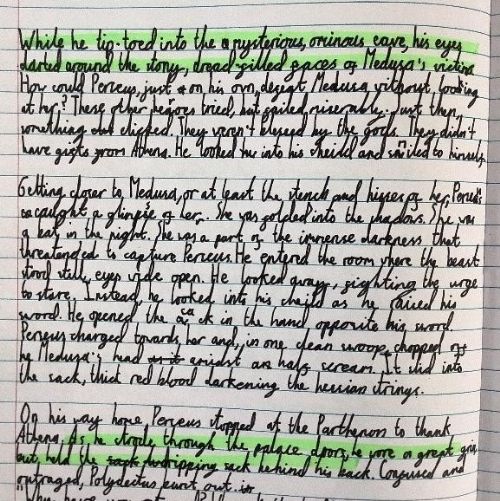 While he tip-toed into the mysterious, ominous cave, his eyes
darted around the stony, dread-filled faces of Medusa's victims.
How could Perseus, just on his own, defeat Medusa without looking
at her? These other heroes tried, but failed miserably. Just then,
something clicked. They weren't blessed by the gods. They didn't
have gifts from Athena. He looked into his sheild and smiled to himself.
Getting closer to Medusa, or at least the stench and hisses of her, Perseus
caught a glimpse of her. She was folded into the shadows. She was
a bat in the night. She was a part of the immense darkness that
threatended to capture Perseus. He entered the room where the beast
stood still, eyes wide open. He looked away, fighting the urge
to stare. Instead, he looked into his sheild as he raised his
sword. He opened the sack in the hand opposite his sword.
Perseus charged towards her and, in one clean swoop, chopped off
Medusa's head amidst a scream. It slid into
the sack, thick red blood darkening the hessian strings.
On his way home Perseus stopped at the Parthenon to thank
Athena. As he strode through the palace doors, he wore a great grin
but held the dripping sack behind his back. Confused and
outraged, Polydectus burst out